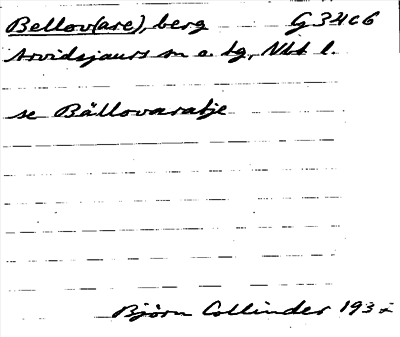 Bellov(are), berg G34c6
Arvidsjaurs sn o. tg, Nbt l.
se Bällovaratje
Björn Collinder 193